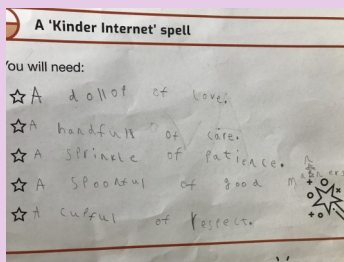 A 'Kinder Internet' spell
ou will need:
A dollop of love.
A handfull of care.
A sprinkle of patience.
A spoonful of good manners
A cupful of respect.